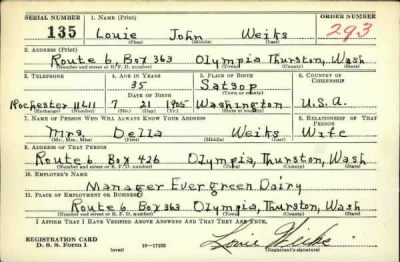 SERIAL NUMBER 1. NAME (Print) ORDER NUMBER
135 Louie John Weiks 293
(First) (Middle) (Last)
2. ADDRESS (Print)
Route 6, Box 363 Olympia, Thurston, Wash
(Number and street or R. F. D. number) (Town) (County) (State)
3. TELEPHONE 4. AGE IN YEARS 5. PLACE OF BIRTH 6. COUNTRY OF CITIZENSHIP
35 Satsop
DATE OF BIRTH (Town or county)
Rochester 11411 7 21 1905 Washington U.S.A.
(Exchange) (Number) (Mo.) (Day) (Yr.) (State or country)
7. NAME OF PERSON WHO WILL ALWAYS KNOW YOUR ADDRESS 8. RELATIONSHIP OF THAT PERSON
Mrs. Della Weiks Wife
(Mr., Mrs., Miss) (First) (Middle) (Last)
9. ADDRESS OF THAT PERSON
Route 6 Box 426 Olympia, Thurston, Wash
(Number and street or R. F. D. number) (Town) (County) (State)
10. EMPLOYER'S NAME
Manager Evergreen Dairy
11. PLACE OF EMPLOYMENT OR BUSINESS
Route 6, Box 363 Olympia, Thurston, Wash
(Number and street or R. F. D. number) (Town) (County) (State)
I AFFIRM THAT I HAVE VERIFIED ABOVE ANSWERS AND THAT THEY ARE TRUE.
REGISTRATION CARD
D. S. S. Form 1 (over) 16—17105 Louie Weiks
(Registrant's signature)